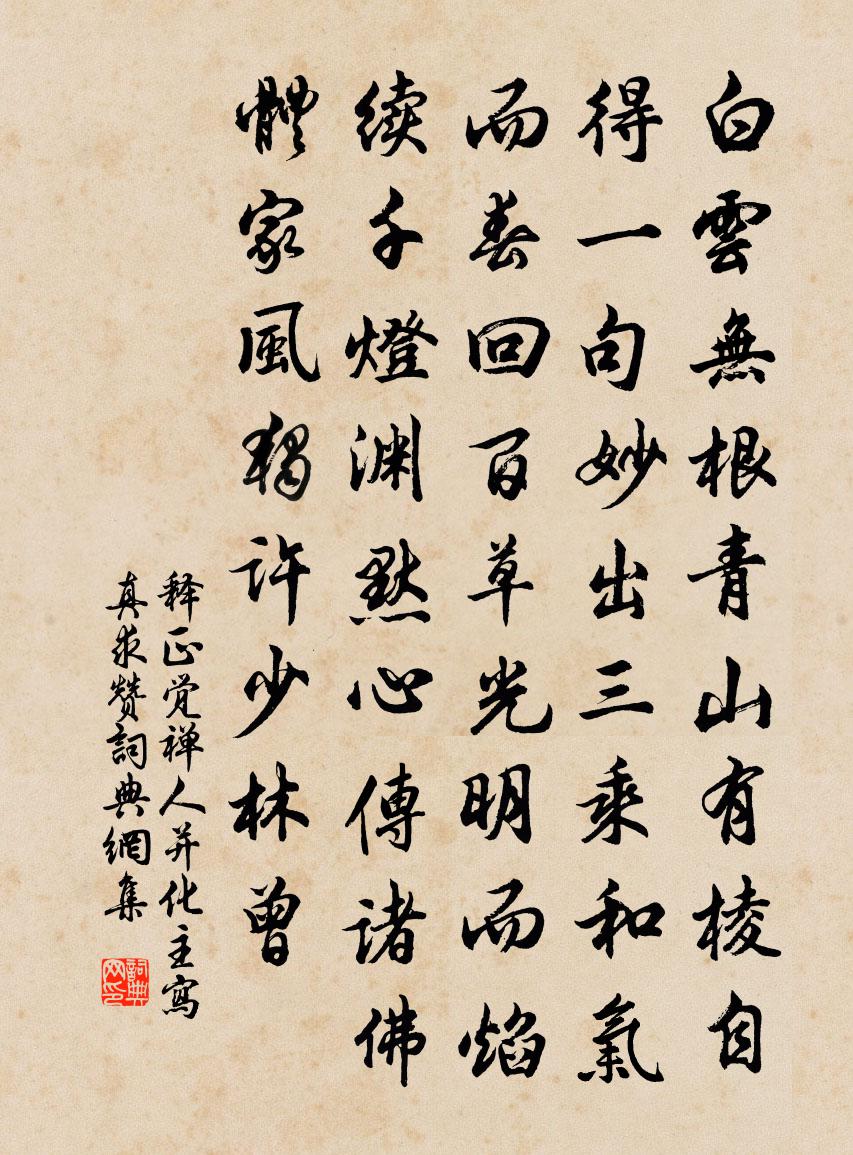 白雲無根青山有棱自
得一句妙出三乘和氣
而春回百草光明而焰
續千燈渊默心傳諸佛
體家風獨許少林曾
释正觉禅人并化主寫
真求赞詞典網集
詞典网印